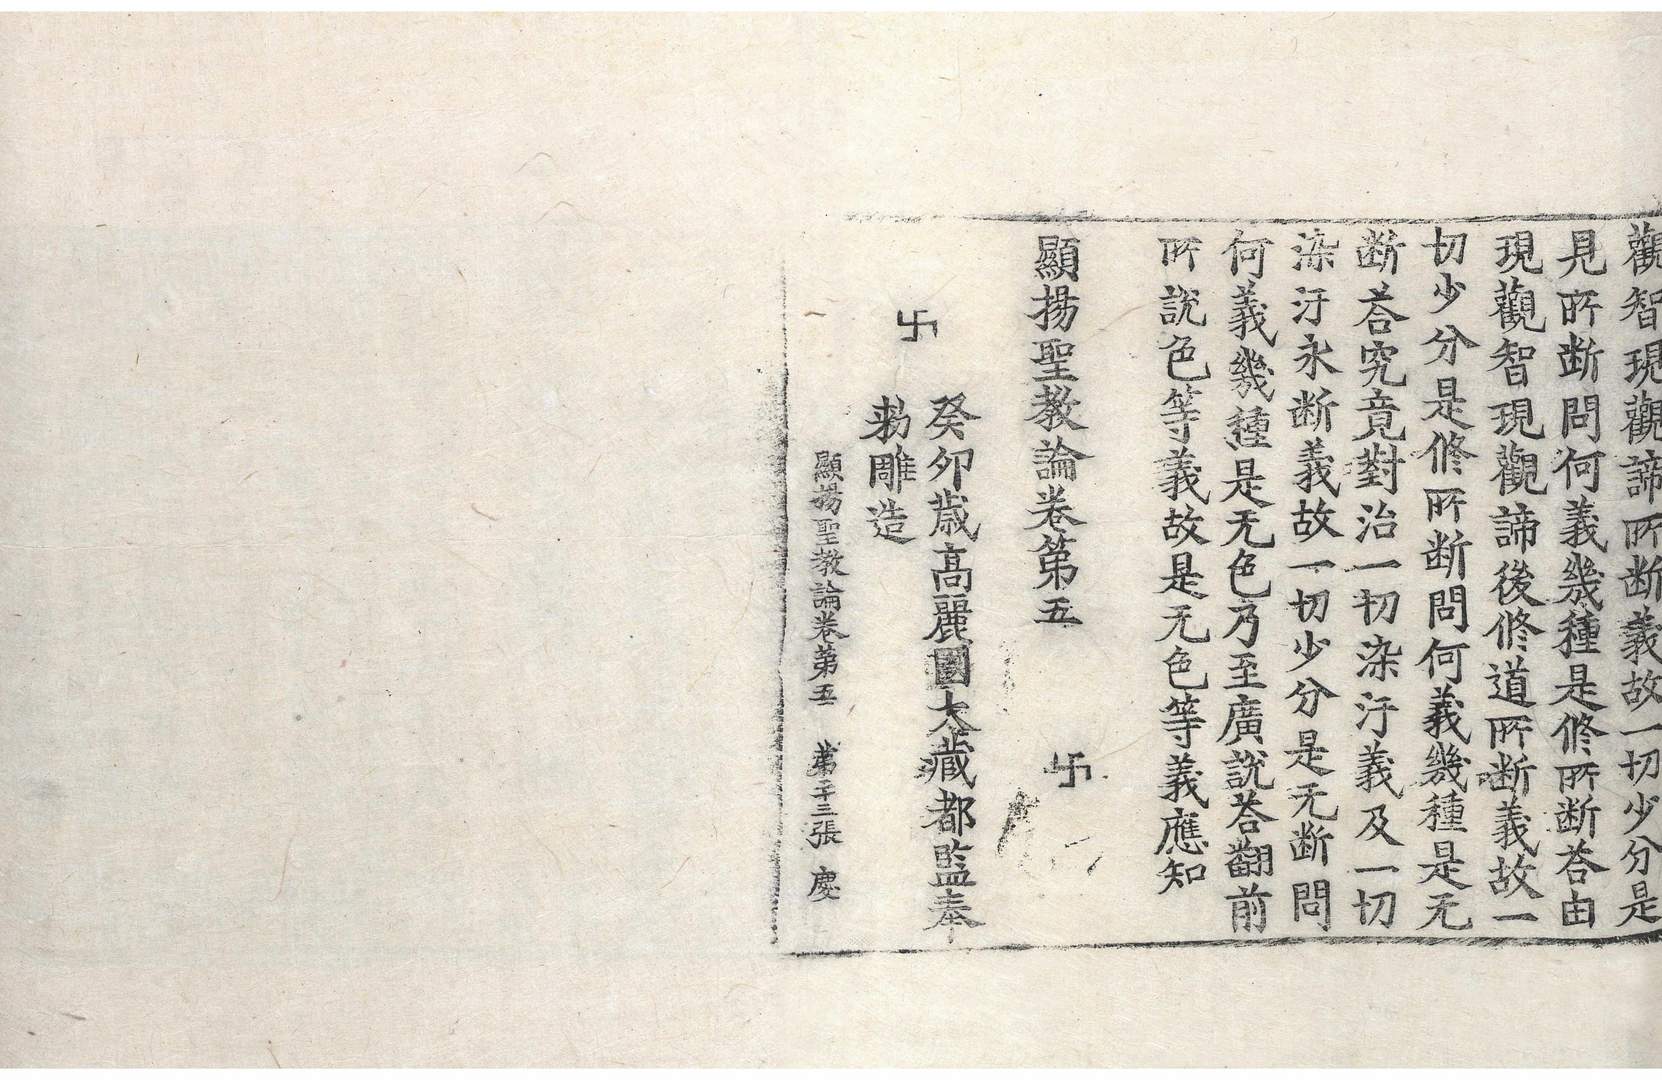 觀智現觀諦所断義故一切少分是
見所断問何義幾種是修所断荅由
現觀智現觀諦後修道所断義故一
切少分是修所断問何義幾種是无
断荅究竟對治一切染汙義及一切
染汙永断義故一切少分是无断問
何義幾種是无色乃至廣說荅翻前
所說色等義故是无色等義應知
顯揚聖教論卷第五
卐
卐
癸卯歳高麗國大藏都監奉
勑雕造
顯揚聖教論卷第五 第二十三張 慶